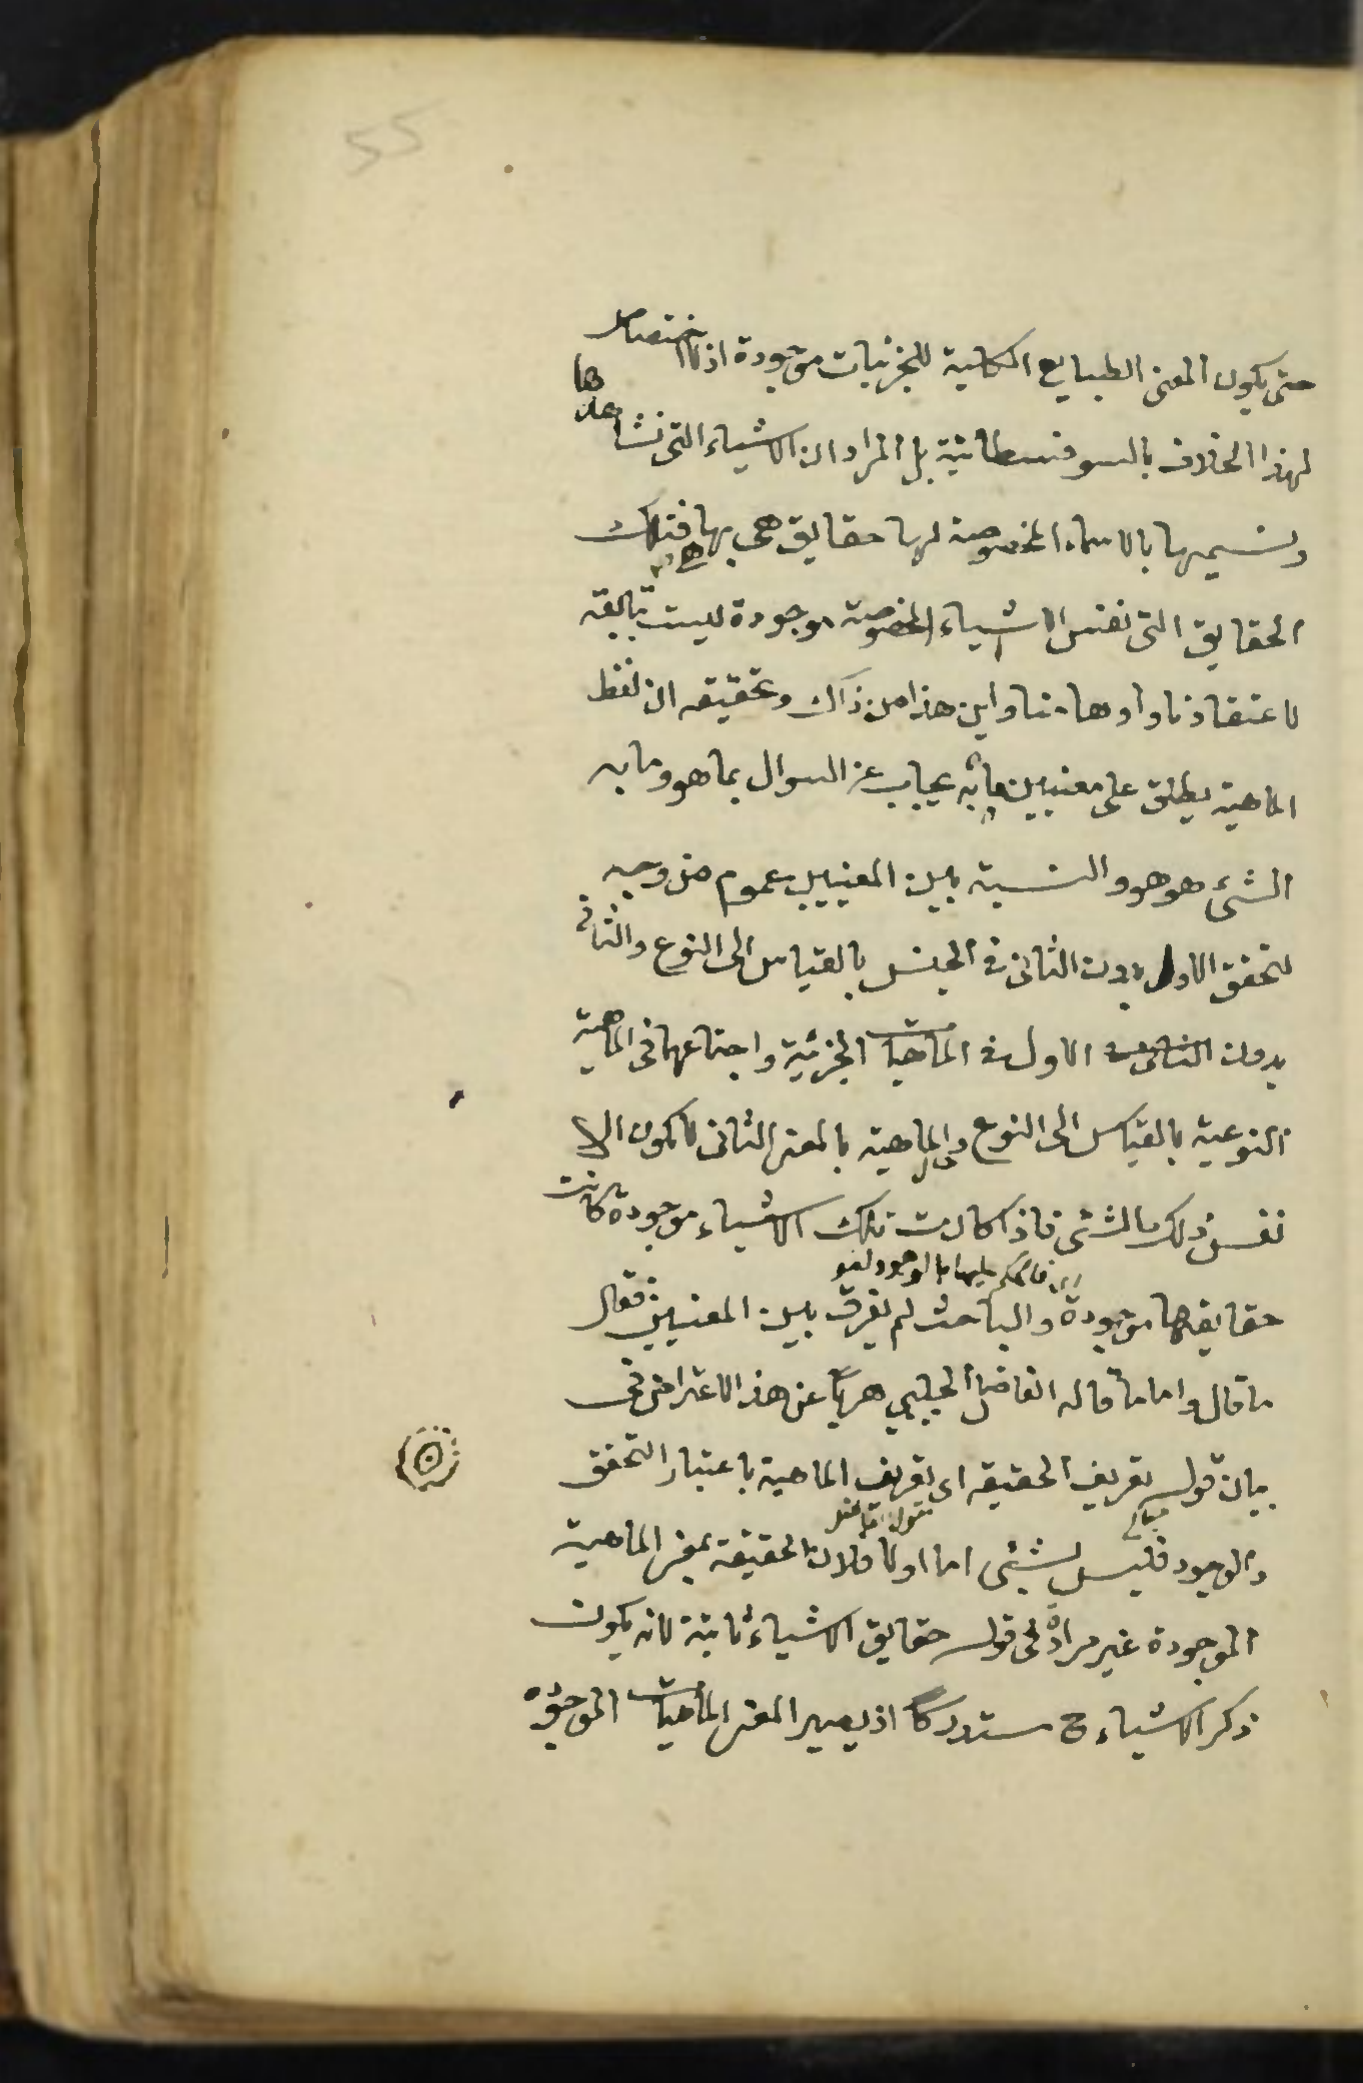 55
حتى يكون المعنى الطبايع الكلية للجزئيات موجودة اذ لا اختصاص
لهذا الخلاف بالسوفسطائية بل المراد ان الاشياء التى نشاهدها
ونسميها بالاسماء المخصوصة لها حقايق هى بها هى فتلك
الحقايق التى نفس الاشياء المخصوصة موجودة ليست تابعة
لاعتقادنا واوهامنا واين هذا من ذاك وتحقيقه ان لفظ
الماهية يطلق على معنيين ما به يجاب عن السوال بما هو وما به
الشئ هو هو والنسبة بين المعنيين عموم من وجه
لتحقق الاول بدون الثانى فى الجنس بالقياس الى النوع والثانى
بدون الثانى الاول فى الماهيات الجزئية واجتماعهما فى الماهية
النوعية بالقياس الى النوع والماهية بالمعنى الثانى لا يكون الا
نفس ذلك الشئ فاذا كانت تلك الاشياء موجودة كانت
فالحكم عليها بالوجود لغو
حقايقها موجودة والباحث لم يفرق بين المعنيين فقال
ما قال واما ما قاله الفاضل الجلبي هربا عن هذا الاعتراض فى
بيان قوله تعريف الحقيقة اى تعريف الماهية باعتبار التحقق
والوجود فليس بشئ اما اولا فلان الحقيقة بمعنى الماهية
الموجودة غير مرادة فى قوله حقايق الاشياء ثابتة لانه يكون
ذكر الاشياء ح مستدركا اذ يصير المعنى الماهيات الموجودة